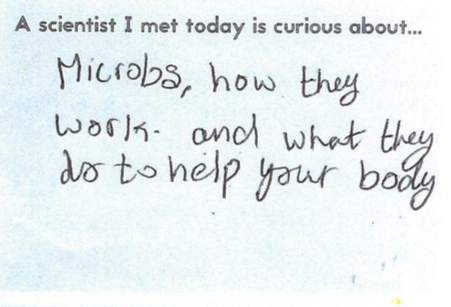 A scientist I met today is curious about...
Microbs, how they
work. and what they
do to help your body